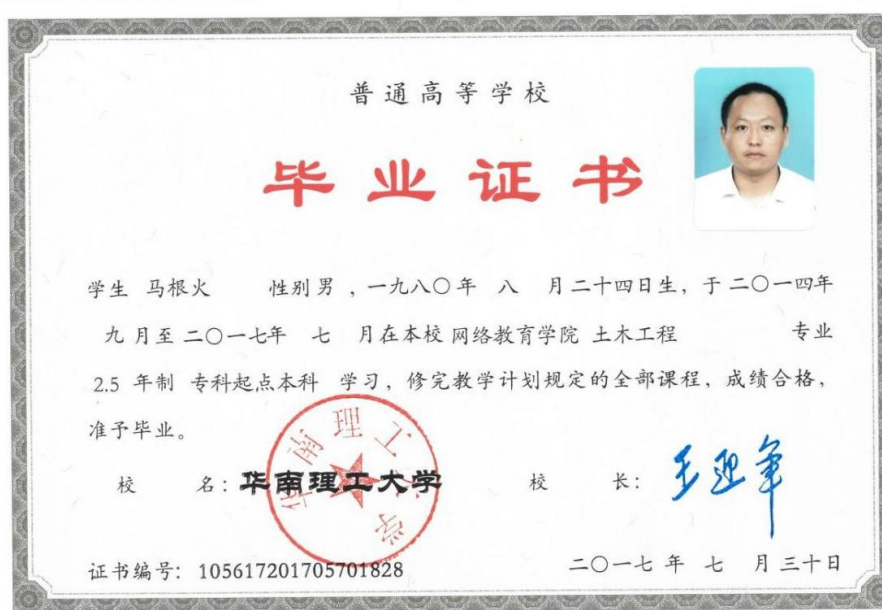 普通高等学校
毕业证书
学生 马根火 性别 男 ，一九八〇年 八 月二十四日生，于二〇一四年
九月至二〇一七年 七 月在本校 网络教育学院 土木工程 专业
2.5 年制 专科起点本科 学习，修完教学计划规定的全部课程，成绩合格，
准予毕业。
华南理工大学
校 名：华南理工大学 校 长：王迎军
证书编号：105617201705701828 二〇一七 年 七 月三十日